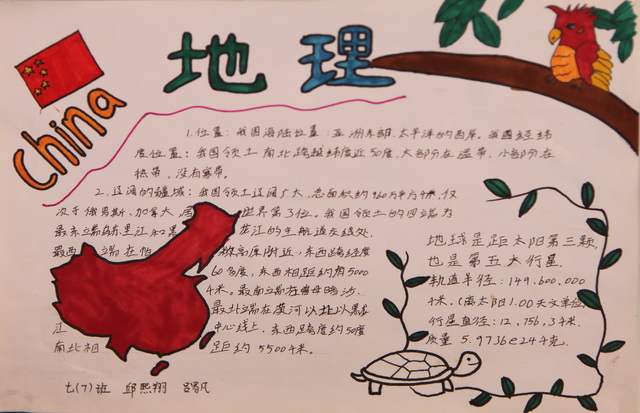 地理
China
1.位置：我国海陆位置：亚洲东部，太平洋的西岸。我国经纬
度位置：我国领土南北跨越纬度近50度，大部分在温带，小部分在
热带，没有寒带。
2.辽阔的疆域：我国领土辽阔广大，总面积约960万平方千米，仅
次于俄罗斯、加拿大，居世界第3位。我国领土的四端为
最东端在黑龙江和乌苏里江的主航道交接处，
最西端在帕米尔高原附近，东西跨经度
60多度，东西相距约5000
千米。最南端在曾母暗沙，
最北端在漠河以北以黑龙
江中心线上，东西跨度约50度
南北相距约5500千米。
地球是距太阳第三颗，
也是第五大行星
轨道半径：149,600,000
千米，(离太阳1.00天文单位)
行星直径：12,756,3千米
质量 5.9736e24千克
七(7)班 邱熙翔